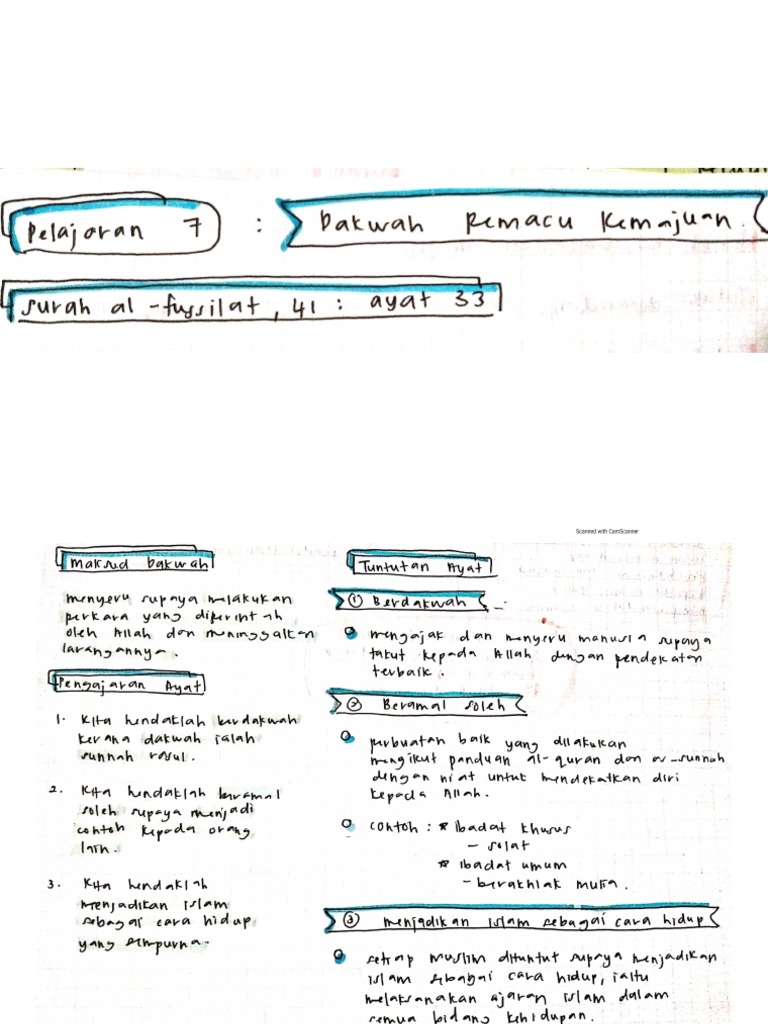 Pelajaran 7 : Dakwah Pemacu Kemajuan.
surah al-fussilat, 41 : ayat 33
Scanned with CamScanner
Maksud Dakwah
menyeru supaya melakukan
perkara yang diperintah
oleh Allah dan meninggalkan
larangannya.
Pengajaran Ayat
1. Kita hendaklah berdakwah
kerana dakwah ialah
sunnah rasul.
2. Kita hendaklah beramal
soleh supaya menjadi
contoh kepada orang
lain.
3. Kita hendaklah
menjadikan islam
sebagai cara hidup
yang sempurna.
Tuntutan Ayat
① Berdakwah
mengajak dan menyeru manusia supaya
takut kepada Allah dengan pendekatan
terbaik.
② Beramal soleh
perbuatan baik yang dilakukan
mengikut panduan al-quran dan as-sunnah
dengan niat untuk mendekatkan diri
kepada Allah.
contoh : * ibadat khusus
- solat
* ibadat umum
- berakhlak mulia.
③ menjadikan islam sebagai cara hidup
setiap muslim dituntut supaya menjadikan
islam sebagai cara hidup, iaitu
melaksanakan ajaran islam dalam
semua bidang kehidupan.